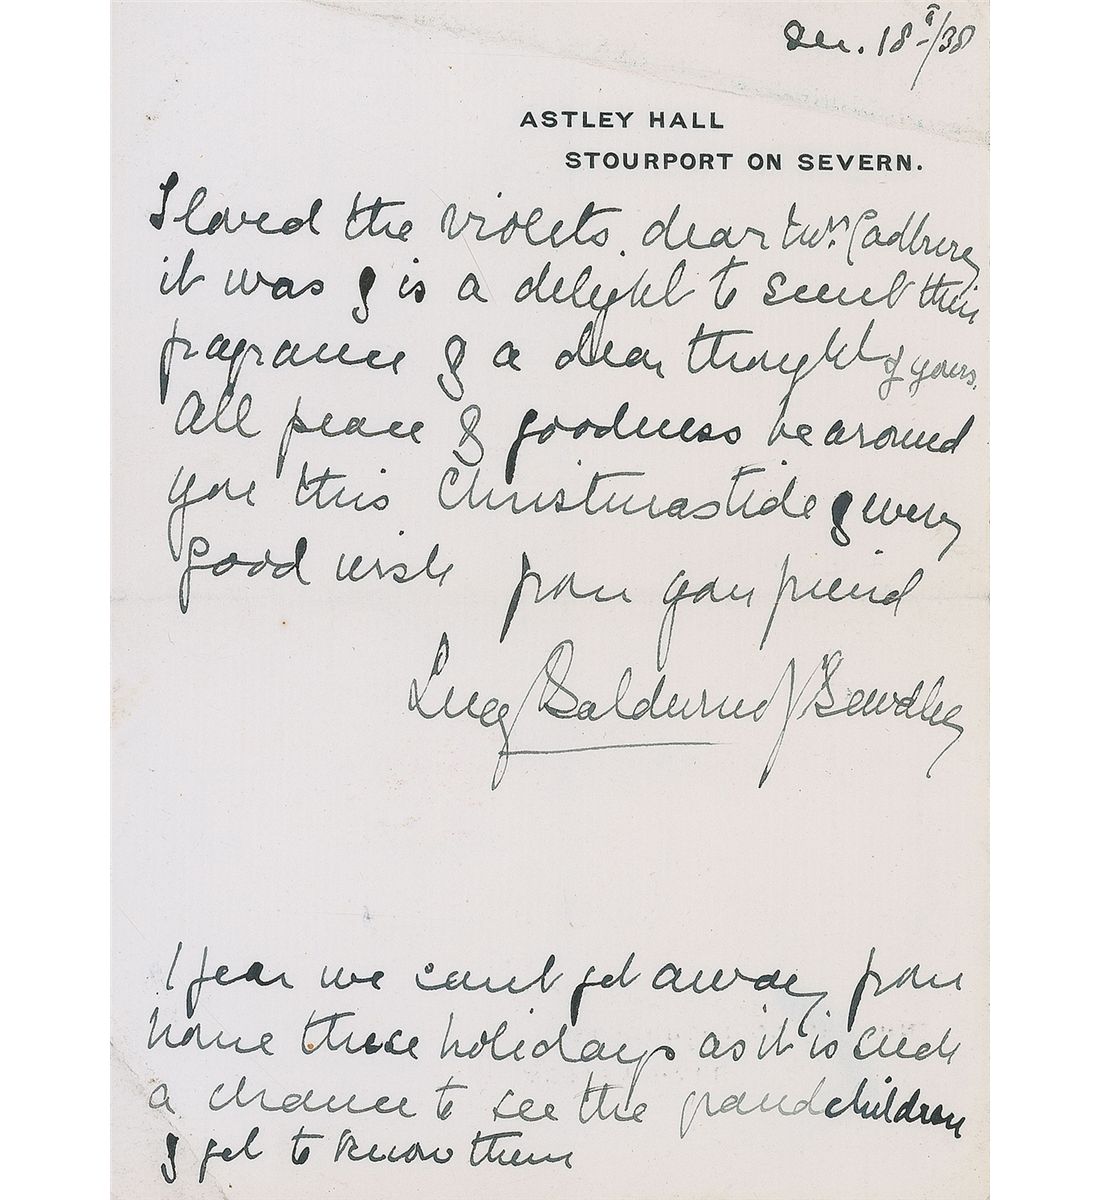 Dec. 18th/38
ASTLEY HALL
STOURPORT ON SEVERN.
I loved the violets, dear Mrs. Cadbury
it was & is a delight to scent their
fragrance & a dear thought of yours.
All peace & goodness be around
you this Christmastide & every
good wish from your friend
Lucy Baldwin of Bewdley
I fear we can't get away from
home these holidays as it is such
a chance to see the grandchildren
& get to know them